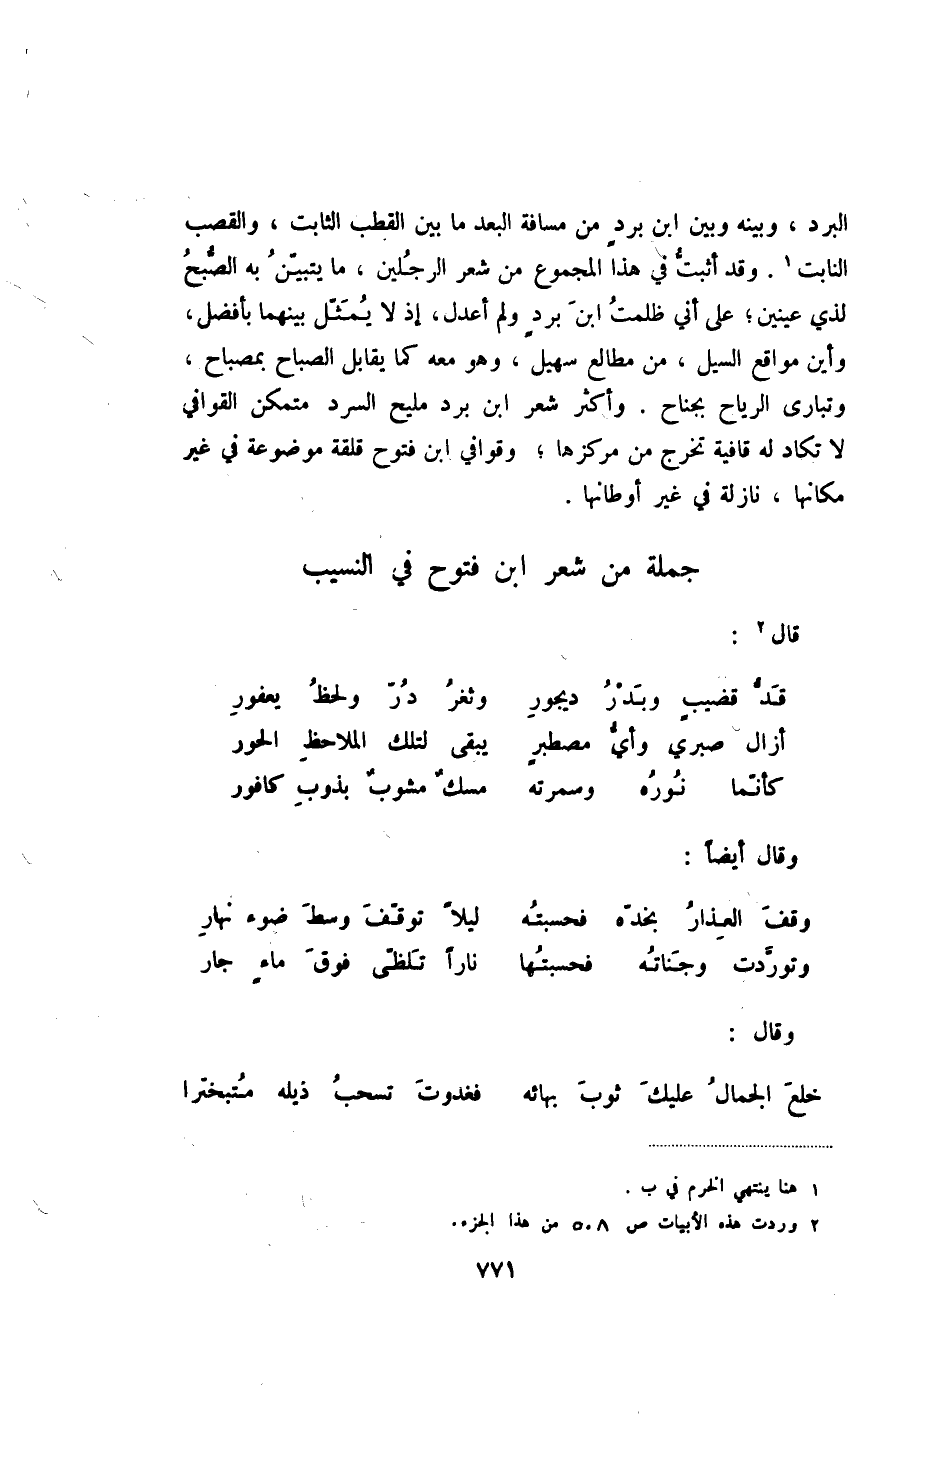 البرد ، وبينه وبين ابن بردٍ من مسافة البعد ما بين القطب الثابت ، والقصب
النابت ١ . وقد أثبتُّ في هذا المجموع من شعر الرجُلين ، ما يتبيّنُ به الصُّبحُ
لذي عينين ؛ على أني ظلمتُ ابنَ بردٍ ولم أعدل، إذ لا يُمَثّل بينهما بأفضل،
وأين مواقع السيل ، من مطالع سهيل ، وهو معه كما يقابل الصباح بمصباح ،
وتبارى الرياح بجناح . وأكثر شعر ابن برد مليح السرد متمكن القوافي
لا تكاد له قافية تخرج من مركزها ؛ وقوافي ابن فتوح قلقة موضوعة في غير
مكانها ، نازلة في غير أوطانها .
جملة من شعر ابن فتوح في النسيب
قال ٢ :
قَدُّ قضيبٍ وبَدْرُ ديجورِ وثغرُ دُرّ ولحظُ يعفورِ
أزال صبري وأيُّ مصطبرٍ يبقى لتلك الملاحظِ الحور
كأنّما نُورُه وسمرته مسكٌ مشوبٌ بذوبِ كافور
وقال أيضاً :
وقفَ العِذارُ بخدّه فحسبتُه ليلاً توقّفَ وسطَ ضوء نهارِ
وتورَّدت وجَناتُه فحسبتُها ناراً تَلظّى فوقَ ماءٍ جار
وقال :
خلعَ الجمالُ عليكَ ثوبَ بهائه فغدوتَ تسحبُ ذيله مُتبخترا
١ هنا ينتهي الخرم في ب .
٢ وردت هذه الأبيات ص ٥٠٨ من هذا الجزء.
٧٧١